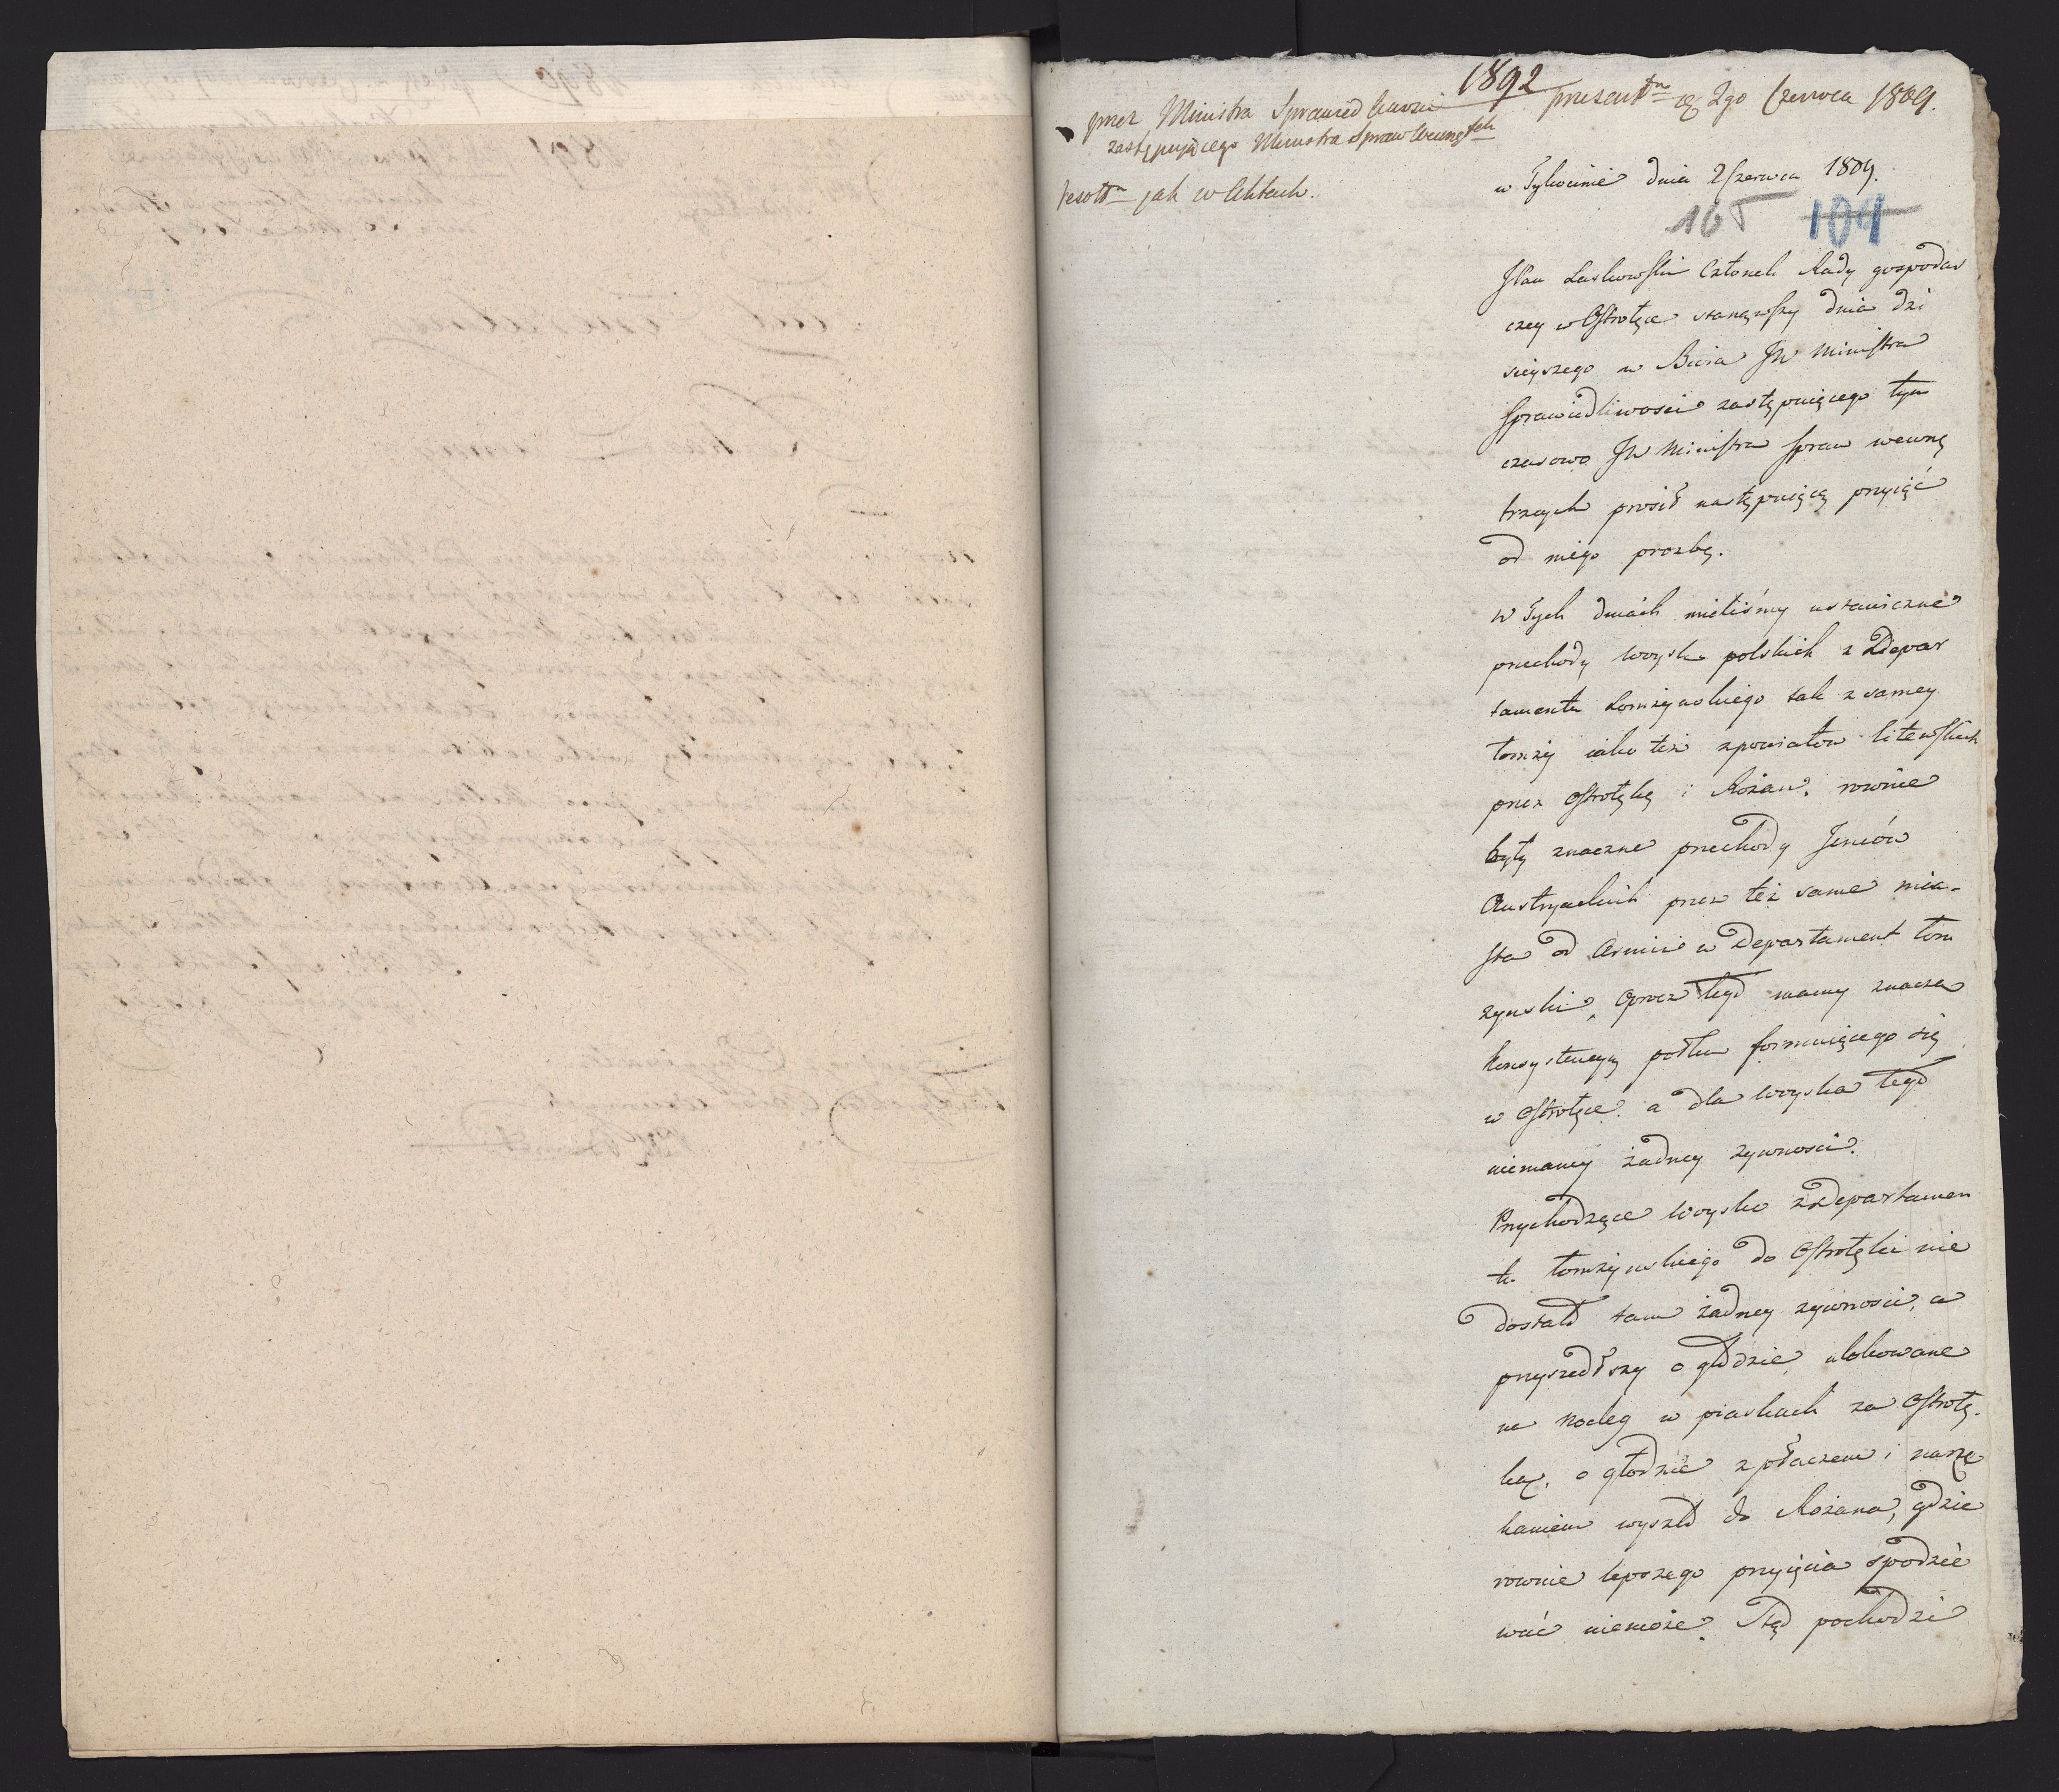 1892
przez Ministra Sprawiedliwosci
zastępującego Ministra Spraw Wewnętch
jak w Aktach.
praesent 2go Czerwca 1809.
w Tykocinie dnia 2 Czerwca 1809.
165 104
JPan Laskowski Członek Rady gospodar
czey w Ostrołęce stanąwszy dnia dzi
sieyszego w Biura JW Ministra
Sprawiedliwosci zastępuiącego tym
czasowo JW Ministra Spraw wewnę
trznych prosił następuiącą przyiąć
od niego prozbę.
W Tych dniach mieliśmy ustawiczne
przechody woysk polskich z Depar
tamentu Łomżynskiego tak z samey
Łomży iako też z powiatow litewskich
przez Ostrołękę i Rożan, rownie
były znaczne przechody Jencow
Austryackich przez też same mia-
sta od Armii w Departament Łom
zynski, Oprocz tego mamy znaczną
konsystencyą pułku formuiącego się
w Ostrołęce. a dla woyska tego
niemamy żadney zywnosci.
Przychodzące woysko z Departamen
tu Łomżynskiego do Ostrołęki nie
dostało tam żadney zywnosci, a
przyszedłszy o głodzie ulokowane
na nocleg w piaskach za Ostrołę-
ką, o głodzie z płaczem i narze
kaniem wyszło do Rożana, gdzie
rownie lepszego przyięcia spodzie
wać niemoże. Ztąd pochodzi